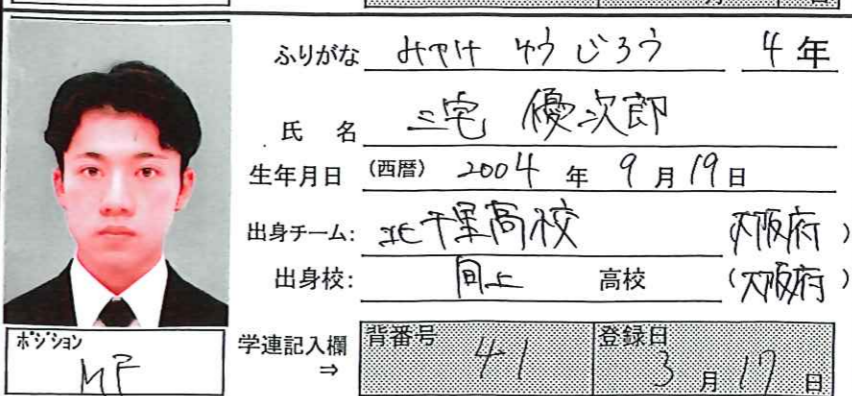 ふりがな みやけ ゆうじろう 4年
氏 名 三宅 優次郎
生年月日 (西暦) 2004 年 9 月 19 日
出身チーム: 北千里高校 (大阪府)
出身校: 同上 高校 (大阪府)
ポジション MF
学連記入欄 ⇒ 背番号 41 登録日 3 月 17 日